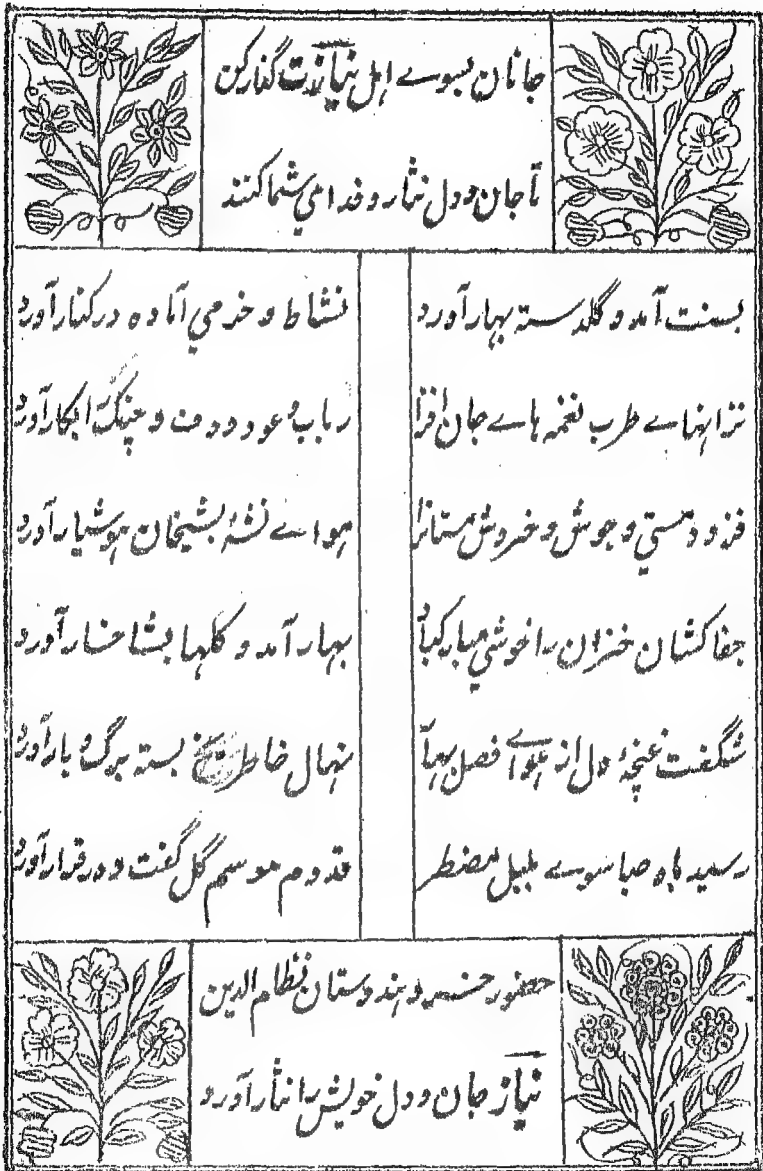 جانان بسوے اہل نیازت گذار کن
تا جان و دل نثار و فداے شما کنند
بسنت آمد و گلدستہ بہار آورد
نشاط و خرمي آمادہ در کنار آورد
طرب نغمہ ہاے جان افزا
رباب و عود و دف و چنگ را بکار آورد
فزود مستي و جوش و خروش مستانرا
ہواے نشہ بشیخان ہوشیار آورد
جفاکشان خزان را خوشي مبارکباد
بہار آمد و گلہا بشاخسار آورد
شگفت غنچۂ دل از ہواے فصل بہار
نہال خاطر بستہ برگ و بار آورد
رسید باد صبا سوے بلبل مضطر
قدوم موسم گل گفت و در قرار آورد
حضور خسرو ہندوستان نظام الدین
نیاز جان و دل خویش را نثار آورد